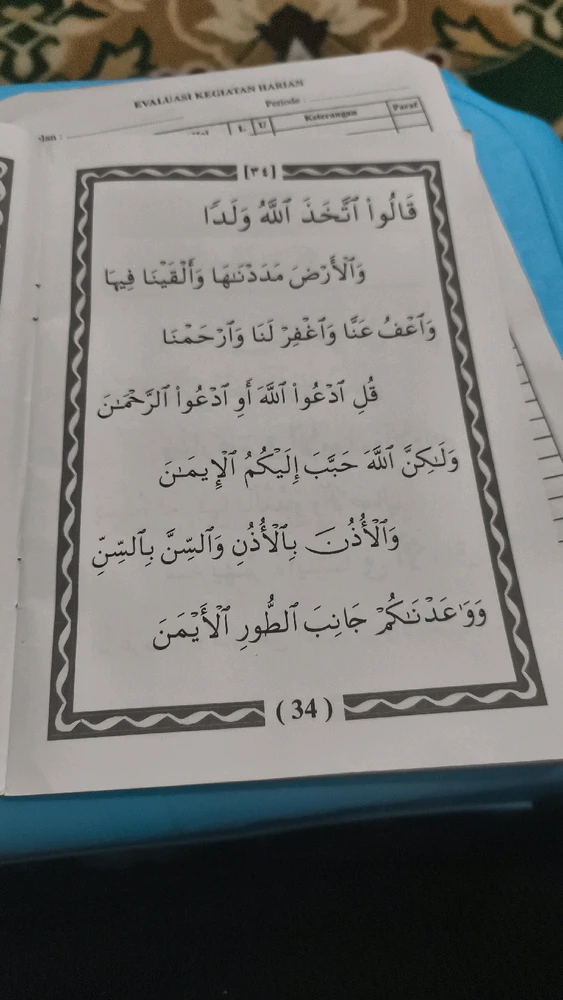 EVALUASI KEGIATAN HARIAN
Periode :
L U Keterangan Paraf
[٣٤]
قَالُوا۟ ٱتَّخَذَ ٱللَّهُ وَلَدًا
وَٱلْأَرْضَ مَدَدْنَـٰهَا وَأَلْقَيْنَا فِيهَا
وَٱعْفُ عَنَّا وَٱغْفِرْ لَنَا وَٱرْحَمْنَا
قُلِ ٱدْعُوا۟ ٱللَّهَ أَوِ ٱدْعُوا۟ ٱلرَّحْمَـٰنَ
وَلَـٰكِنَّ ٱللَّهَ حَبَّبَ إِلَيْكُمُ ٱلْإِيمَـٰنَ
وَٱلْأُذُنَ بِٱلْأُذُنِ وَٱلسِّنَّ بِٱلسِّنِّ
وَوَٰعَدْنَـٰكُمْ جَانِبَ ٱلطُّورِ ٱلْأَيْمَنَ
( 34 )